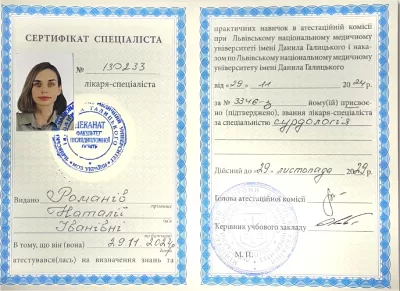 СЕРТИФІКАТ СПЕЦІАЛІСТА
№ 130233
лікаря-спеціаліста
ДЕКАНАТ
ФАКУЛЬТЕТ
ПІСЛЯДИПЛОМНОЇ
Видано Романів
прізвище
Наталії
ім'я
Іванівні
по батькові
В тому, що він (вона) 29.11.2024р.
атестувався(лась) на визначення знань та
практичних навичок в атестаційній комісії
при Львівському національному медичному
університеті імені Данила Галицького і нака-
лом по Львівському національному медичному
університету імені Данила Галицького
від «29» 11 2024р.
за № 3346-з йому(їй) присвоє-
но (підтверджено), звання лікаря-спеціаліста
за спеціальністю сурдологія
Дійсний до «29» листопада 2029
Голова атестаційної комісії
Керівник учбового закладу
М. П.